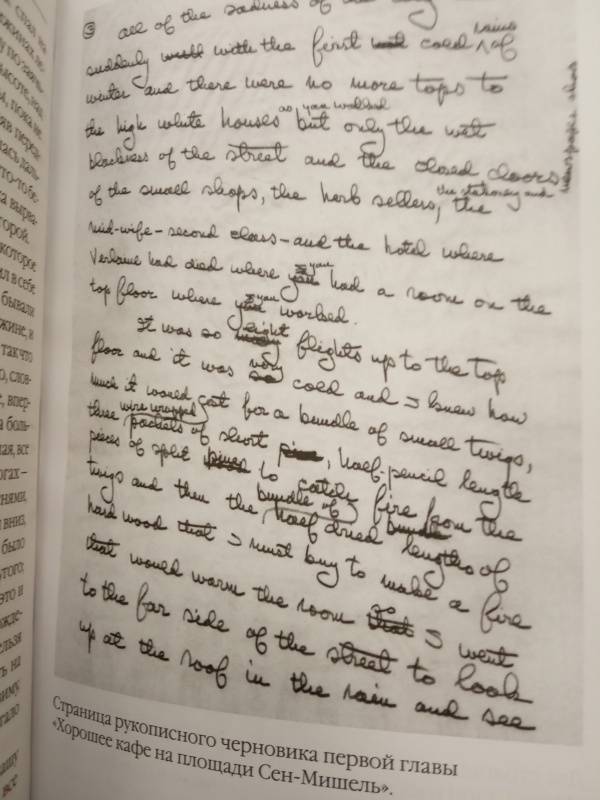 ③ all of the sadness of the
suddenly with the first cold rains of
winter and there were no more tops to
the high white houses as you walked but only the wet
blackness of the street and the closed doors
of the small shops, the herb sellers, the stationery and newspaper shops the
mid-wife – second class – and the hotel where
Verlaine had died where you had a room on the
top floor where you worked.
It was so eight flights up to the top
floor and it was very cold and I knew how
much it would cost for a bundle of small twigs,
three wire wrapped packets of short, half-pencil length
pieces of split to catch fire from the
twigs and then the bundle of half dried lengths of
hard wood that I must buy to make a fire
that would warm the room so I went
to the far side of the street to look
up at the roof in the rain and see
Страница рукописного черновика первой главы
«Хорошее кафе на площади Сен-Мишель».